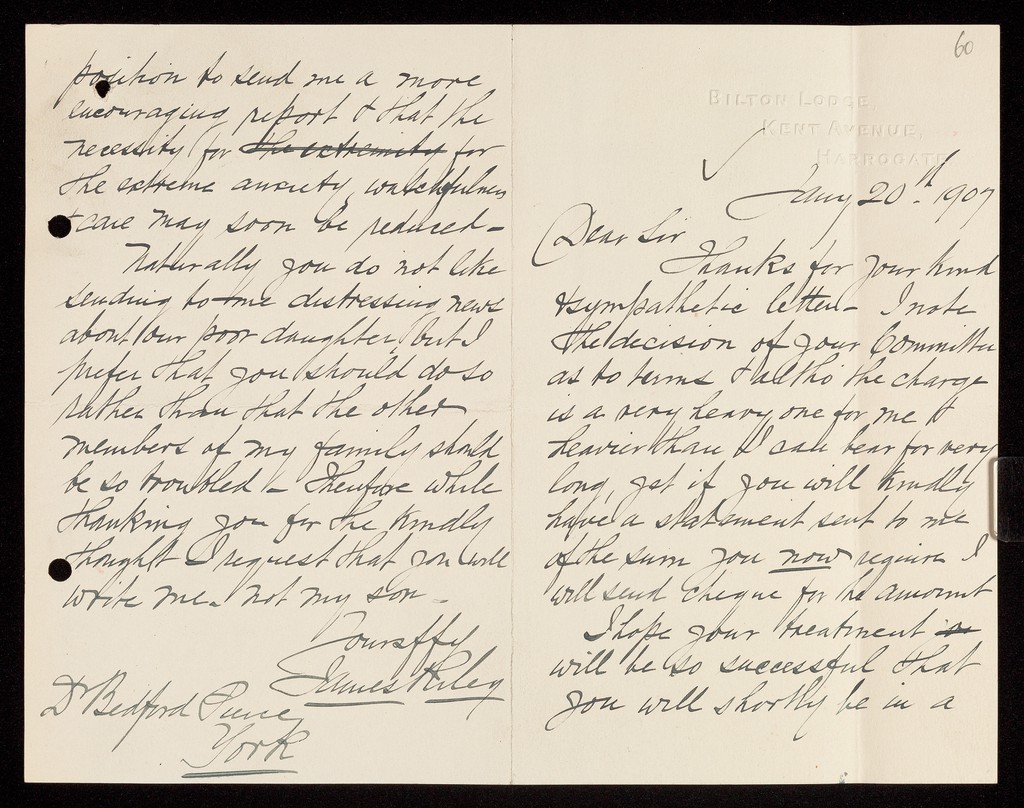 60
BILTON LODGE
KENT AVENUE,
HARROGATE
Jany 20th 1907
Dear Sir
Thanks for your kind
& sympathetic letter - I note
the decision of your Committee
as to terms & altho the charge
is a very heavy one for me &
heavier than I can bear for very
long, yet if you will kindly
have a statement sent to me
of the sum you now require I
will send cheque for he amount
I hope your treatment is
will be so successful that
you will shortly be in a
position to send me a more
encouraging report & that the
necessity for the extremity for
the extreme anxiety, watchfulness
& care may soon be reduced -
Naturally you do not like
sending to me distressing news
about our poor daughter, but I
prefer that you should do so
rather than that the other
members of my family should
be so troubled - Therefore while
thanking you for the kindly
thought I request that you will
write me - not my son -
Yours ffly
James Riley
Dr Bedford Pierce
York